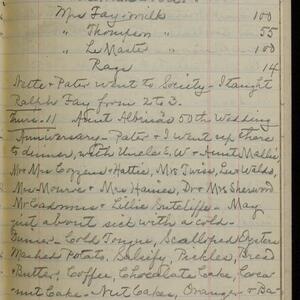 Mrs Fay - milk 100
" Thompson " 55
" Le Master " 100
Rags 14
Nette & Pater went to Society - I taught
Ralph Fay from 2 to 3.
Thurs. 11 Aunt Albina's 50th Wedding
Anniversary - Pater & I went up there
to dinner, with Uncle E. W & Aunt Mallie,
Mr & Mrs Coggens & Hattie, Mrs Twiss, Lew Walds,
Mrs Monroe & Mrs Haines, Dr & Mrs Sherwood
Mr Cadmus & Lillie Sutcliffe - May
just about sick with a cold -
Dinner - Cold Tongue, Scalloped Oysters
Mashed Potato, Salsify, Pickles, Bread
& Butter, Coffee, Chocolate Cake, Coca-
nut Cake - Nut Cakes, Oranges & Ba-